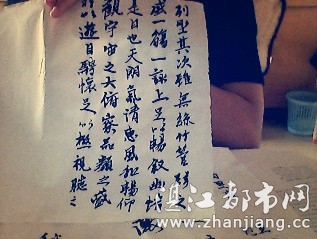 列坐其次雖無絲竹管弦之
盛一觴一詠亦足以暢叙幽情
是日也天朗氣清惠風和暢仰
觀宇宙之大俯察品類之盛
所以遊目騁懷足以極視聽之
湛江都市网
www.zhanjiang.cc